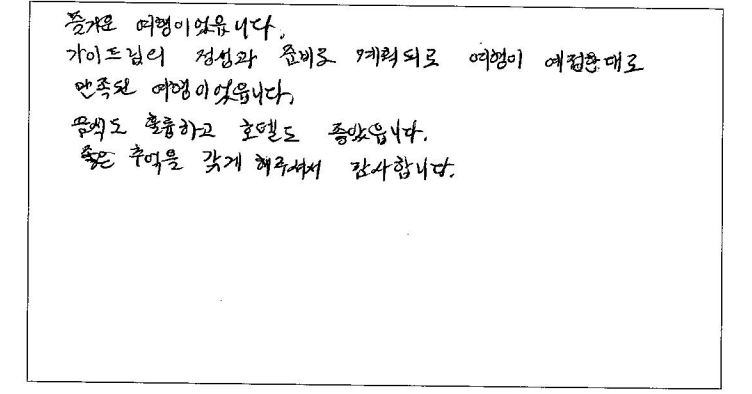 즐거운 여행이었읍니다.
가이드님의 정성과 준비로 계획되로 여행이 예점한대로
만족된 여행이었읍니다,
음식도 훌륭하고 호텔도 좋았읍니다.
좋은 추억을 갖게 해주셔서 감사합니다.